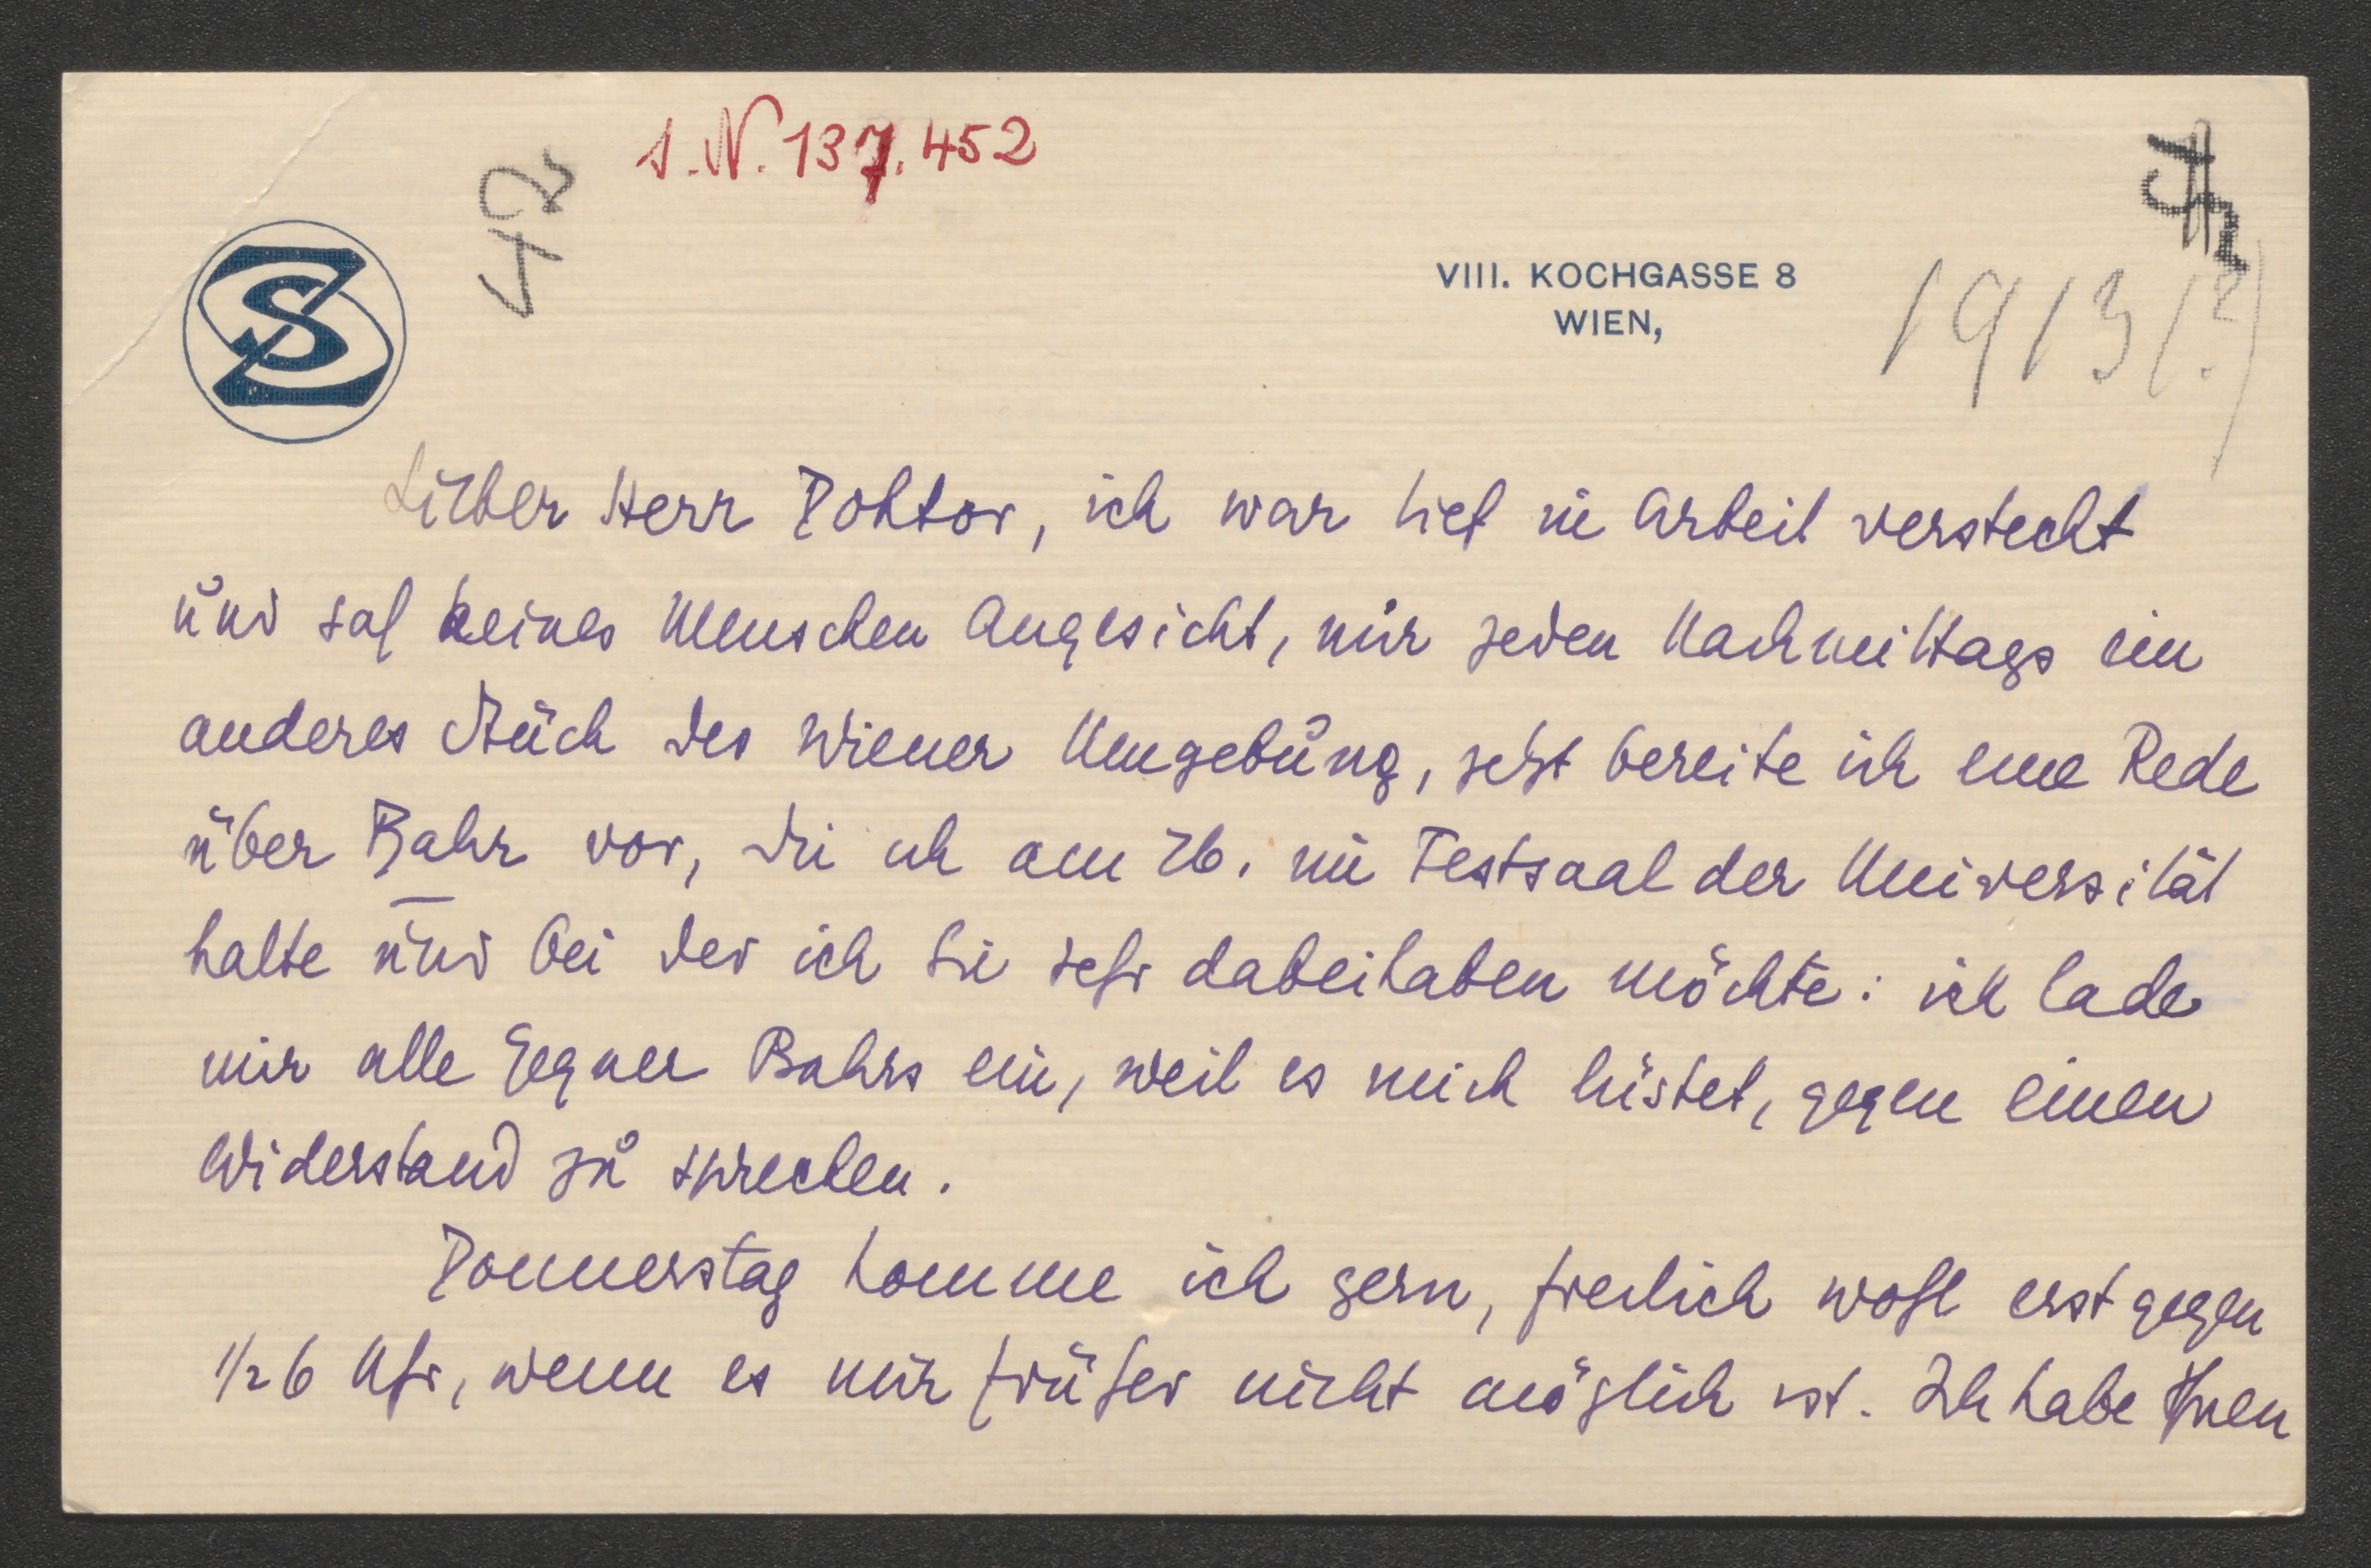 I.N. 137.452
42
SZ
VIII. KOCHGASSE 8
WIEN,
1913(?)
Lieber Herr Doktor, ich war tief in Arbeit versteckt
und sah keines Menschen Angesicht, nur jeden Nachmittags ein
anderes Stück der Wiener Umgebung, jetzt bereite ich eine Rede
über Bahr vor, die ich am 26. im Festsaal der Universität
halte und bei der ich Sie sehr dabeihaben möchte: ich lade
mir alle Gegner Bahrs ein, weil es mich lüstet, gegen einen
Widerstand zu sprechen.
Donnerstag komme ich gern, freilich wohl erst gegen
1/2 6 Uhr, wenn es mir früher nicht möglich ist. Ich habe Ihnen